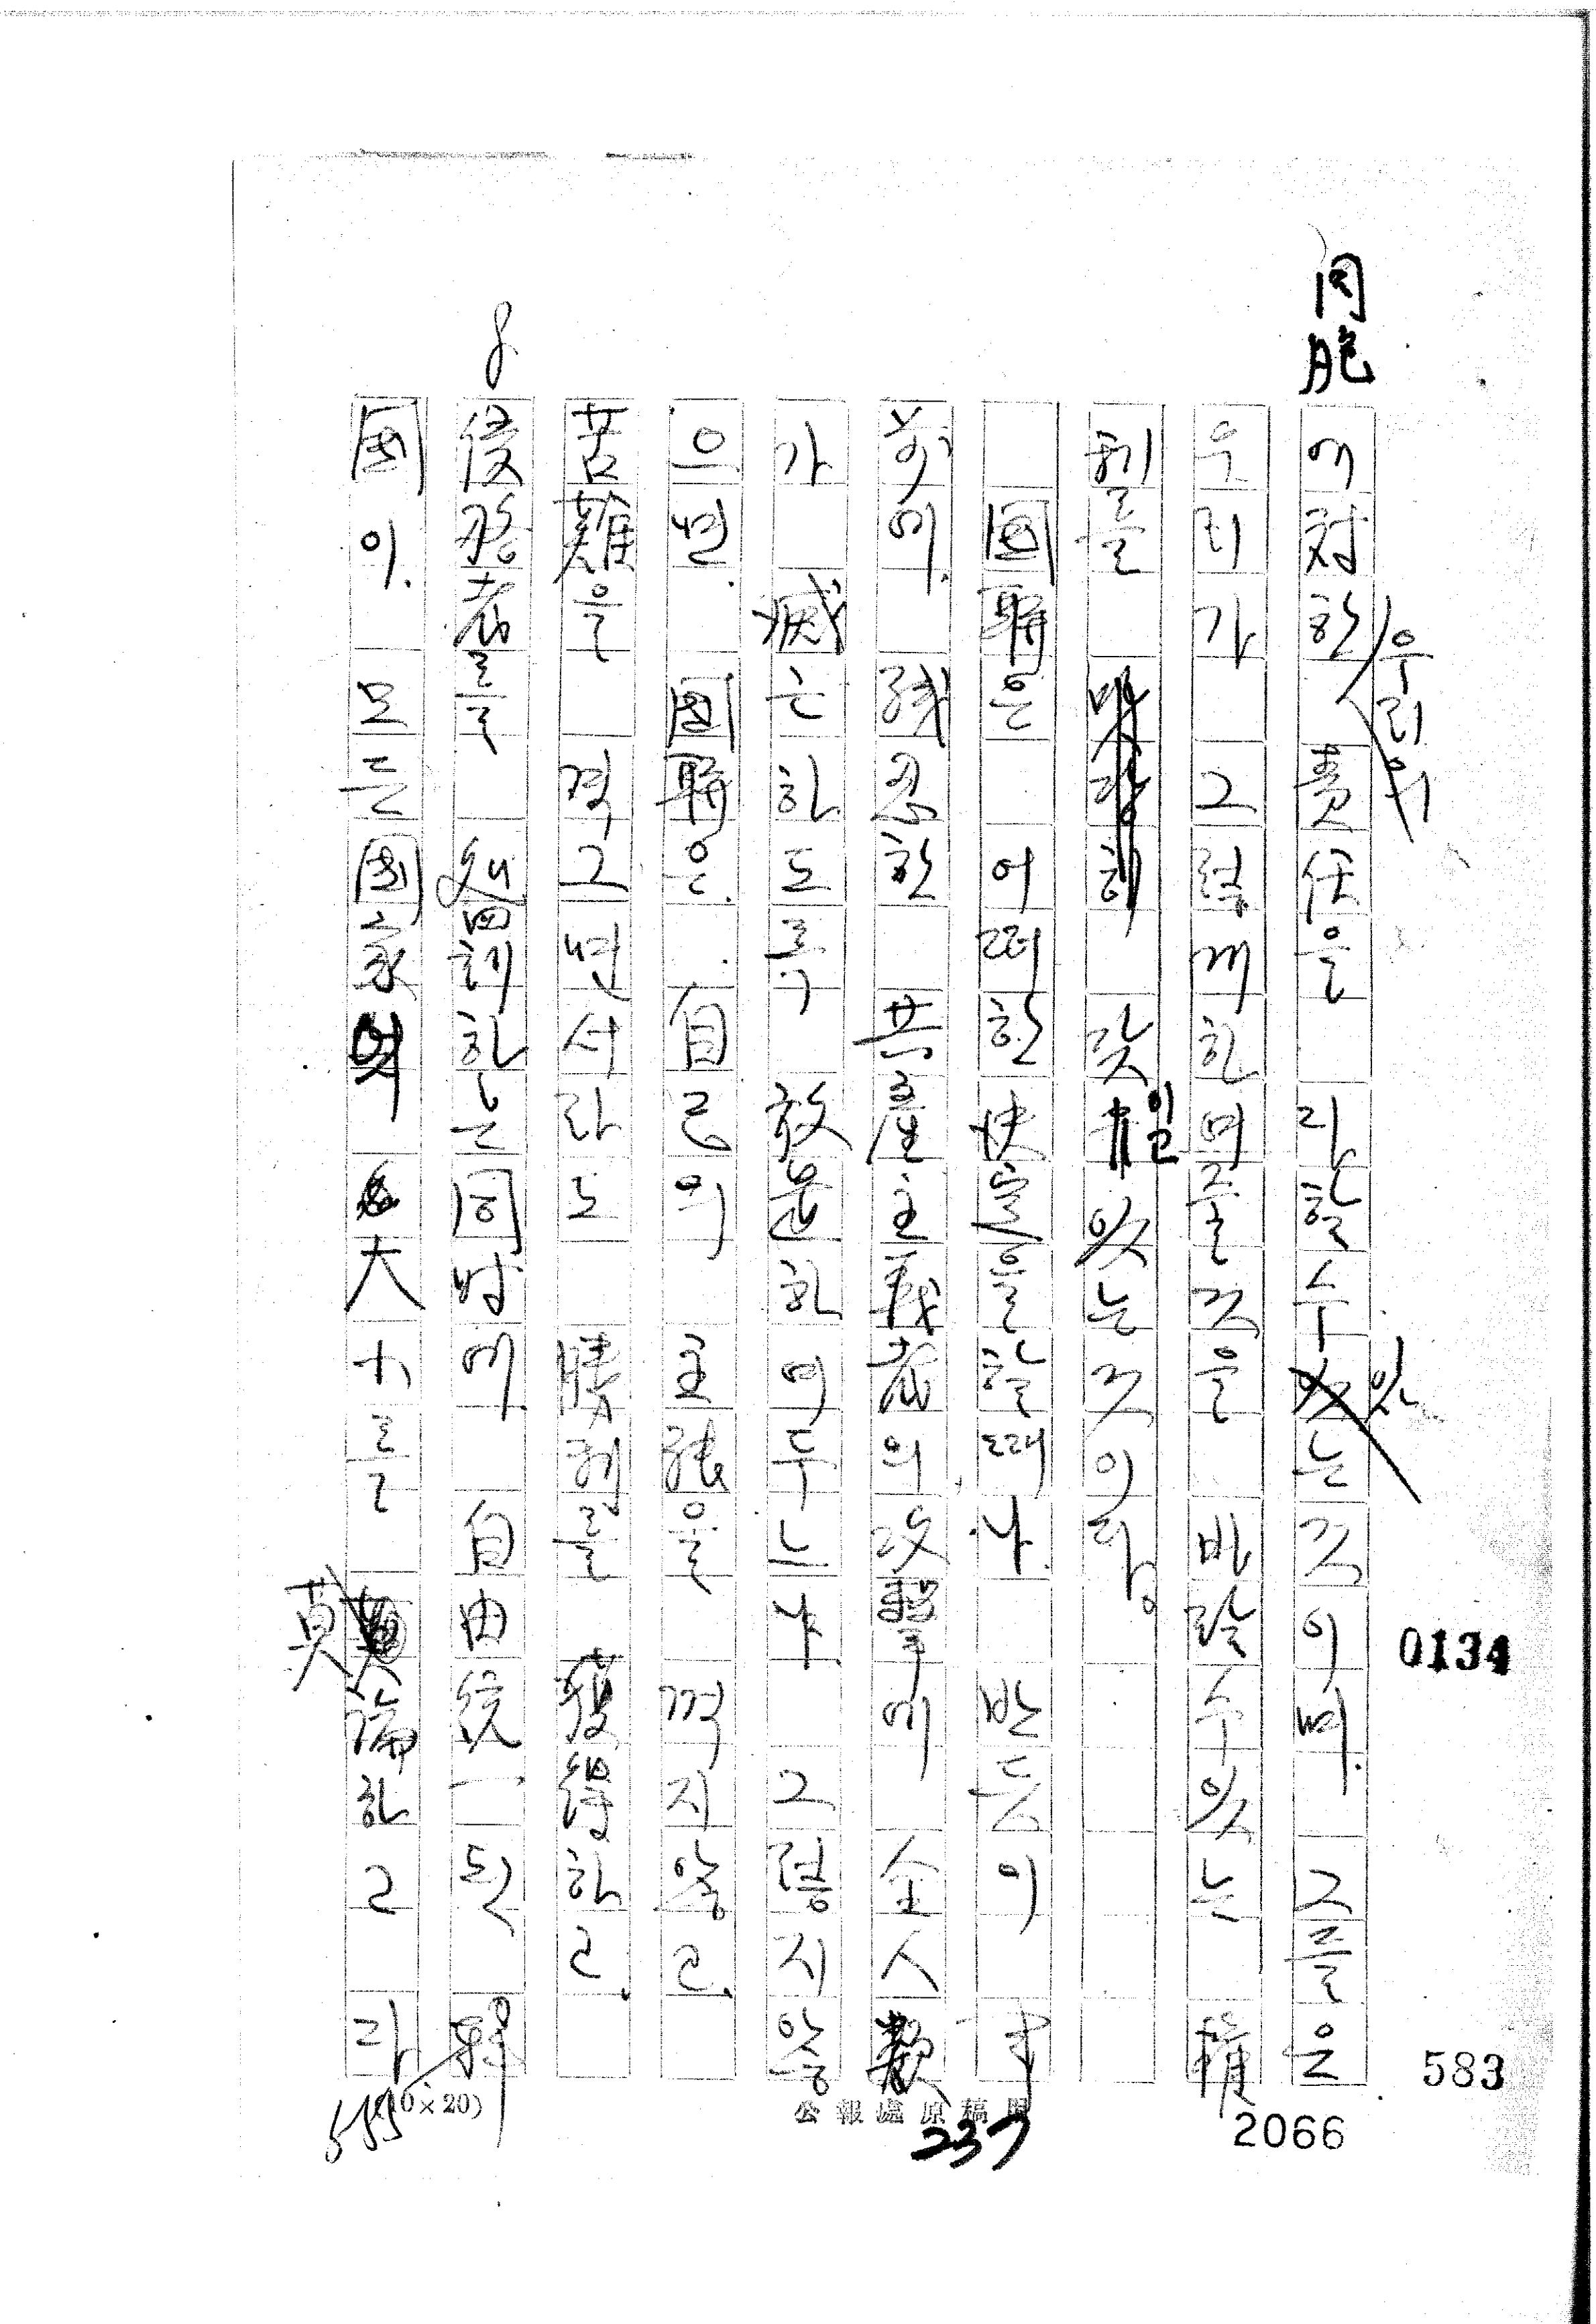 同胞
에対한 우리의 責任을 다할수있는것이며. 그들은
우리가 그렇게하여줄것을 바랄수있는 權
利를 갖 있는것이다.
國聯은 어떠한決定을할때나. 반듯이
에. 殘忍한 共産主義者의攻擊에 全人類
가 滅는하도록 放置하여두느냐 그렇지않
으면. 國聯은. 自己의 主張을 꺽지않고.
苦難을 격그면서라도 勝利를 獲得하고.
侵略者를 懲罰하는同時에 自由統一된 韓
國이. 모든國家의 大小를 莫論하고 다
0134
583
2066
237
公報處原稿用
(10×20)